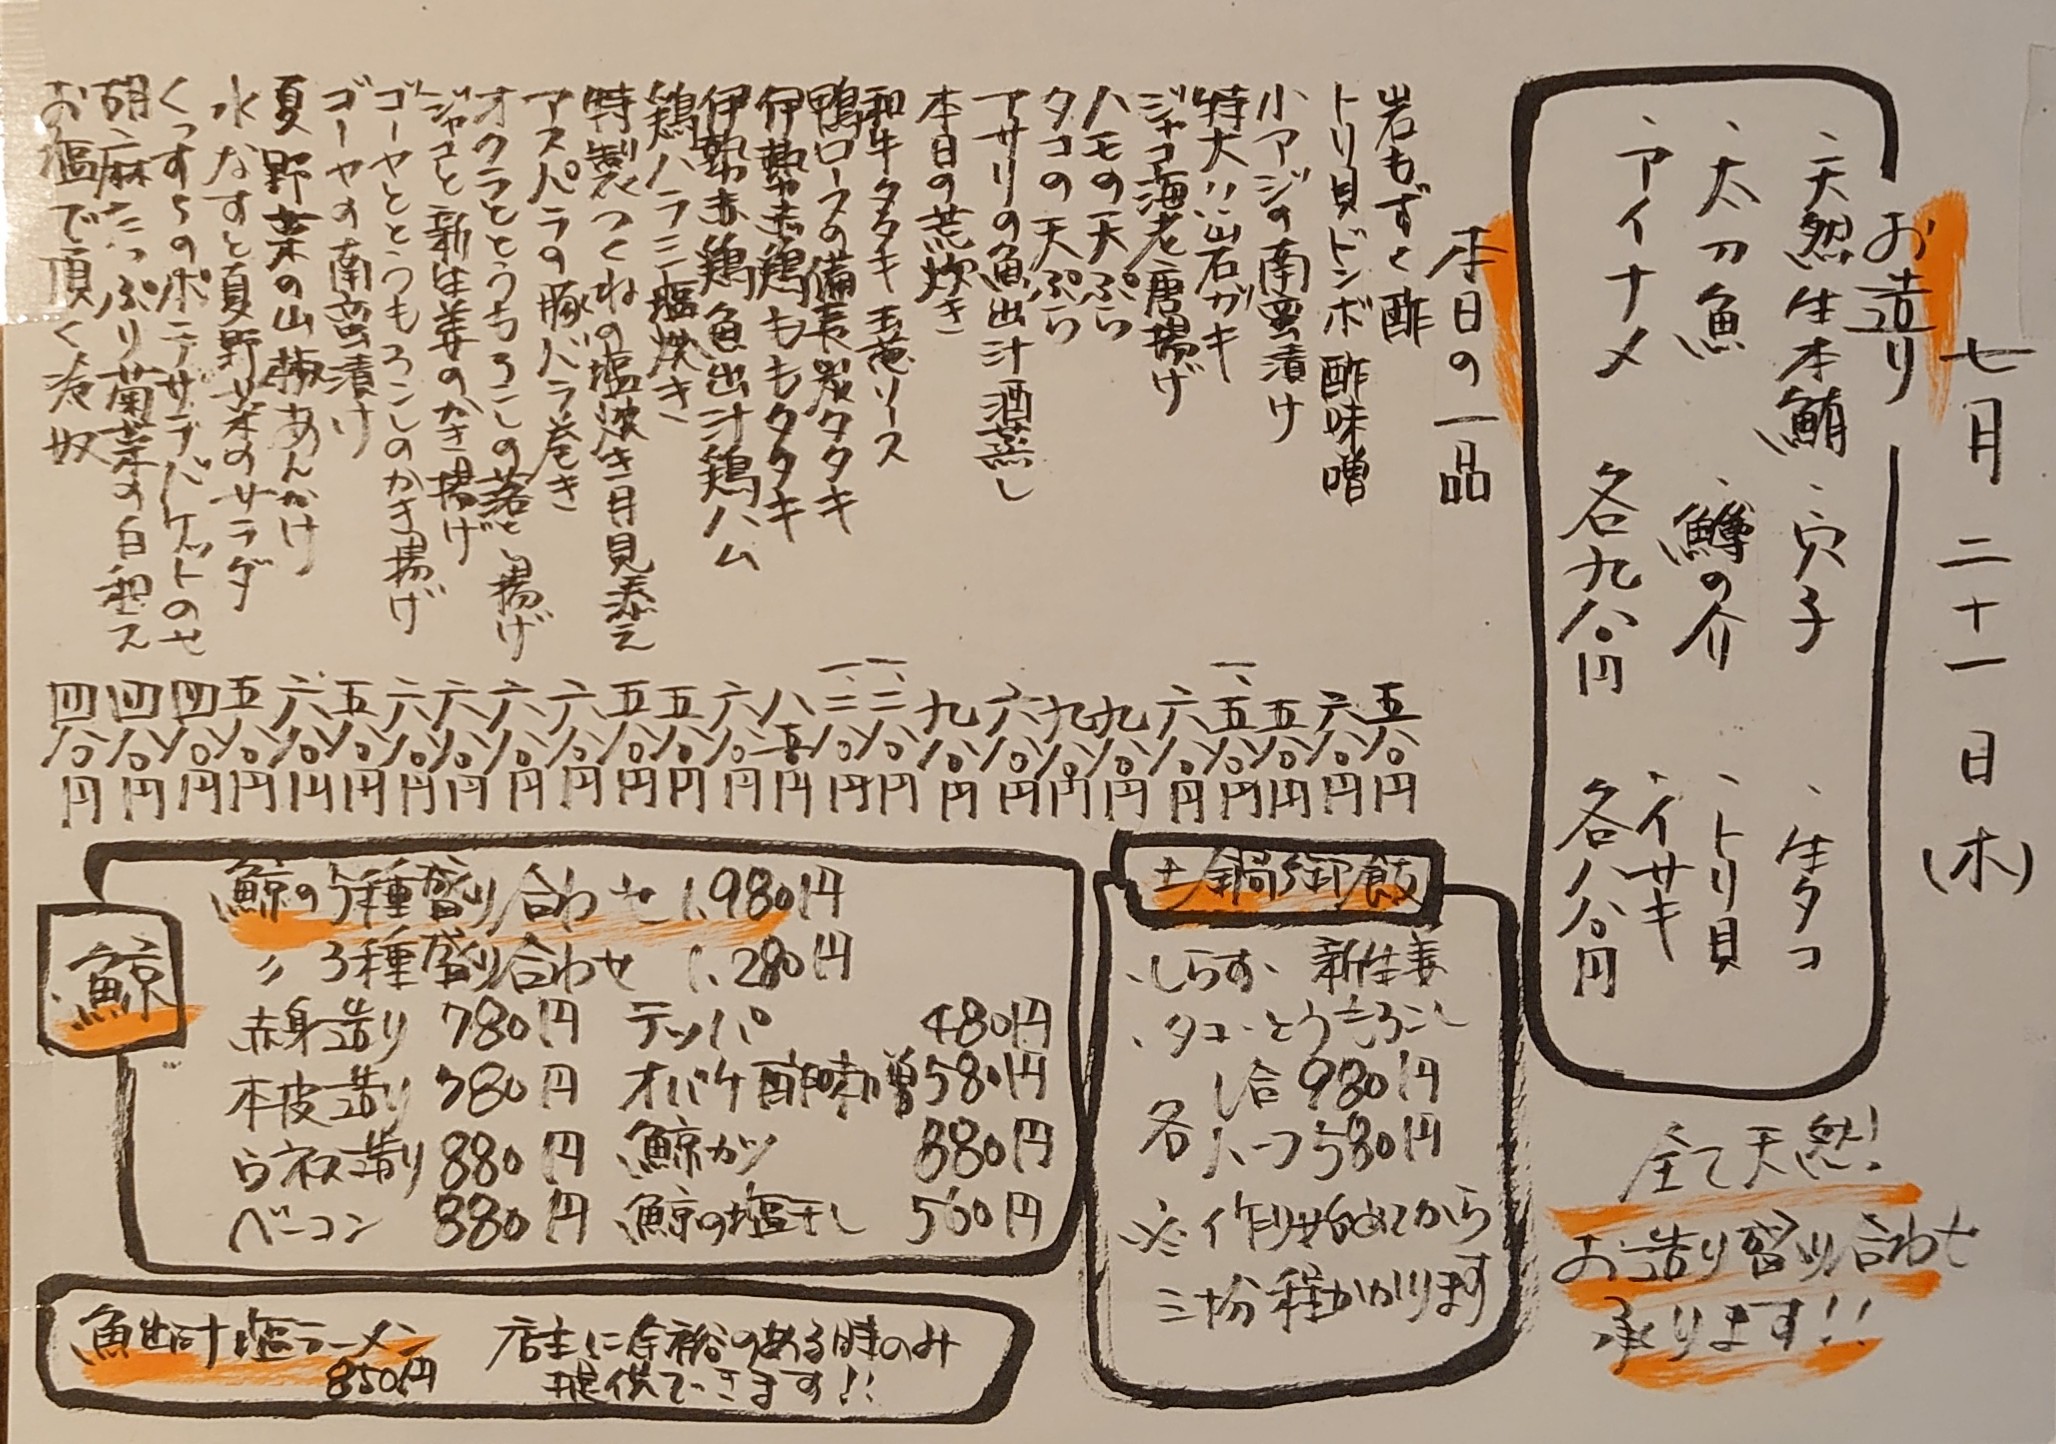 七月二十一日(木)
お造り
、天然生本鮪、穴子、生タコ
、太刀魚、鱒の介、トリ貝
、イサキ
、アイナメ 各九八〇円 各八八〇円
全て天然!
お造り盛り合わせ
承ります!!
本日の一品
岩もずく酢 五八〇円
トリ貝ドンボ酢味噌 六八〇円
小アジの南蛮漬け 五八〇円
特大!!岩ガキ 一、五八〇円
ジャコ海老唐揚げ 六八〇円
ハモの天ぷら 九八〇円
タコの天ぷら 九八〇円
アサリの魚出汁酒蒸し 六八〇円
本日の荒炊き 九八〇円
和牛タタキ玉葱ソース 一、二八〇円
鴨ロースの備長炭タタキ 一、二八〇円
伊勢赤鶏ももタタキ 八八〇円
伊勢赤鶏魚出汁鶏ハム 六八〇円
鶏ハラミ塩焼き 五八〇円
特製つくねの塩焼き月見添え 五八〇円
アスパラの豚バラ巻き 六八〇円
オクラととうもろこしの落とし揚げ 六八〇円
ジャコと新生姜のかき揚げ 六八〇円
ゴーヤととうもろこしのかき揚げ 六八〇円
ゴーヤの南蛮漬け 五八〇円
夏野菜の山椒あんかけ 六八〇円
水なすと夏野菜のサラダ 五八〇円
くっすちのポテサラバケットのせ 四八〇円
胡麻たっぷり菊菜の白和え 四八〇円
お塩で頂く冷奴 四八〇円
土鍋御飯
、しらす、新生姜
、タコ、とうもろこし
各 一合 980円
ハーフ 580円
※作り始めてから
三十分程かかります
鯨
鯨の5種盛り合わせ 1,980円
〃 3種盛り合わせ 1,280円
赤身造り 780円 テッパ 480円
本皮造り 780円 オバケ酢味噌 580円
ウネス造り 880円 鯨カツ 880円
ベーコン 880円 鯨の塩干し 580円
魚出汁塩ラーメン 850円
店主に余裕のある時のみ
提供できます!!